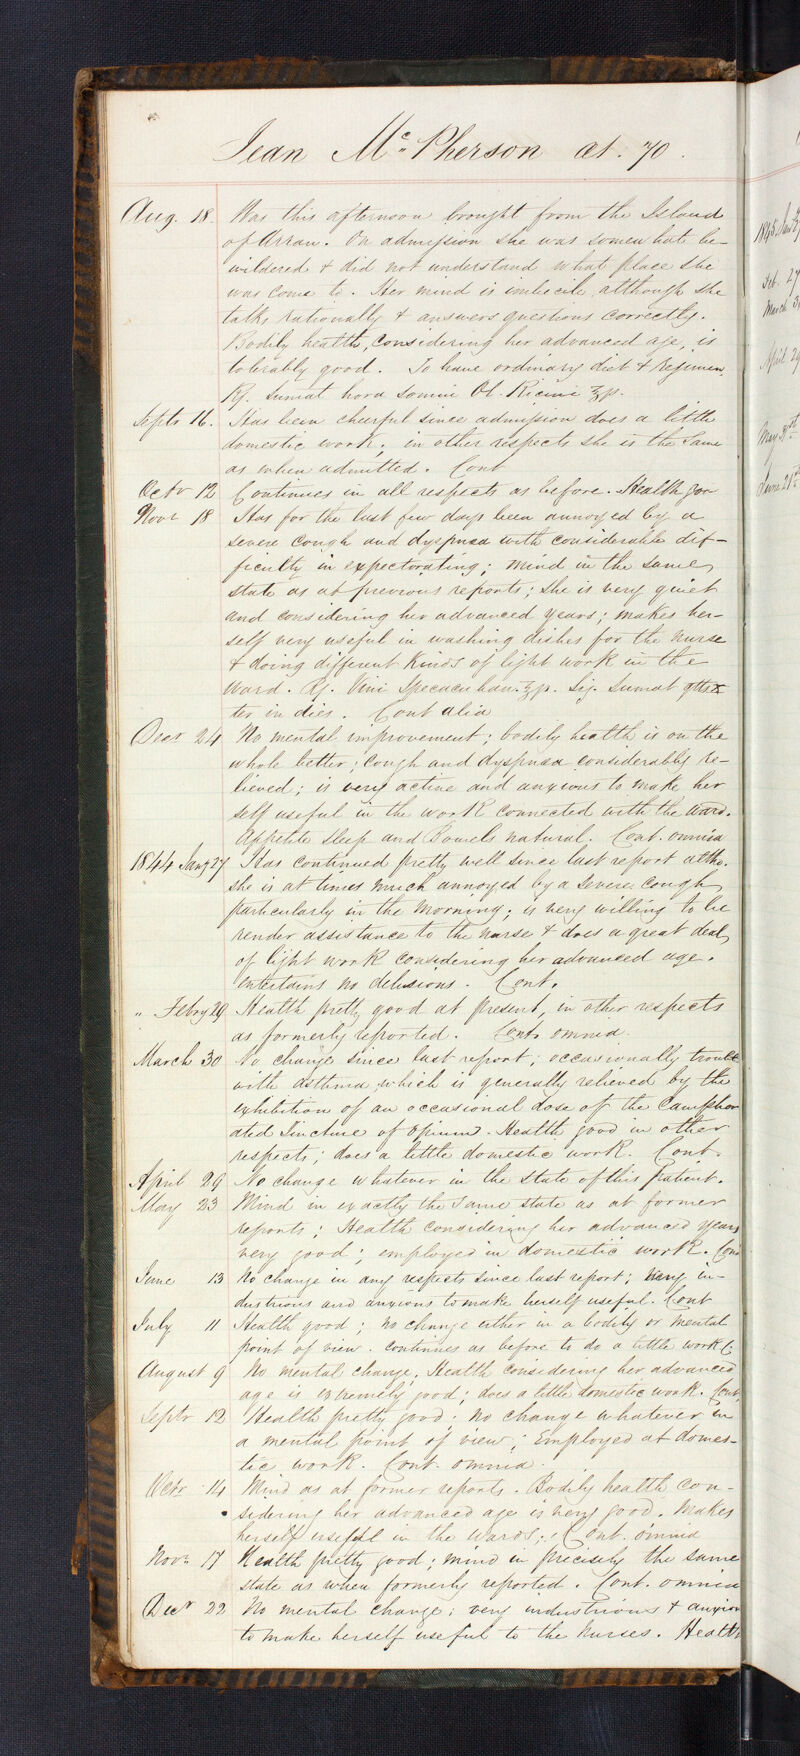 Jean McPherson æt. 70.
Aug. 18. Was this afternoon brought from the Island
of Arran. On admission she was somewhat be-
wildered & did not understand what place she
was come to. Her mind is imbecile, although she
talks rationally & answers questions correctly.
Bodily health, considering her advanced age, is
tolerably good. To have ordinary diet & Regimen.
Rj. Sumat hora somni Ol. Ricini ʒp.
Septr 16. Has been cheerful since admission does a little
domestic work; in other respects she is the same
as when admitted. Cont
Octr 12 Continues in all respects as before. Health good
Novr 18 Has for the last few days been annoyed by a
severe cough and dyspnœa with considerable dif-
ficulty in expectorating; mind in the same
state as at previous reports; she is very quiet
and considering her advanced years; makes her-
self very useful in washing dishes for the nurse
& doing different Kinds of light work in the
ward. Rj. Vini Ipecacuhan. ʒp. Sig. Sumat gtts x
ter in dies. Cont alia
Decr 24 No mental improvement; bodily health is on the
whole better; cough and dyspnœa considerably re-
lieved; is very active and anxious to make her
self useful in the work connected with the ward.
Appetite sleep and Bowels natural. Cont. omnia
1844 Jany 27 Has continued pretty well since last report altho.
she is at times much annoyed by a severe cough
particularly in the morning; is very willing to be
render assistance to the nurse & does a great deal
of light work considering her advanced age.
entertains no delusions. Cont.
" Febry 29 Health pretty good at present, in other respects
as formerly reported. Contr omnia.
March 30 No change since last report; occasionally trouble
with asthma which is generally relieved by the
exhibition of an occasional dose of the Camphor
ated Tincture of Opium. Health good in other
respects; does a little domestic work. Cont.
April 29 No change whatever in the state of this patient.
May 23 Mind in exactly the same state as at former
reports; Health considering her advanced years
very good; employed in domestic work. Con
June 13 No change in any respects since last report; very in-
dustrious and anxious to make herself useful. Cont
July 11 Health good; no change either in a bodily or mental
point of view. Continues as before to do a little work C.
August 9 No mental change. Health considering her advanced
age is extremely good; does a little domestic work. Cont.
Septr 12 Health pretty good; no change whatever in
a mental point of view; Employed at domes-
tic work. Cont. omnia.
Octr 14 Mind as at former reports. Bodily health con-
sidering her advanced age is very good. Makes
herself useful in the wards; Cont. omnia
Novr 17 Health pretty good; mind in precisely the same
state as when formerly reported. Cont. omnia
Decr 22 No mental change; very industrious & anxious
to make herself useful to the nurses. Health
1845. Jan
Feb. 27
March 3
April 29
May 31st
June 21st